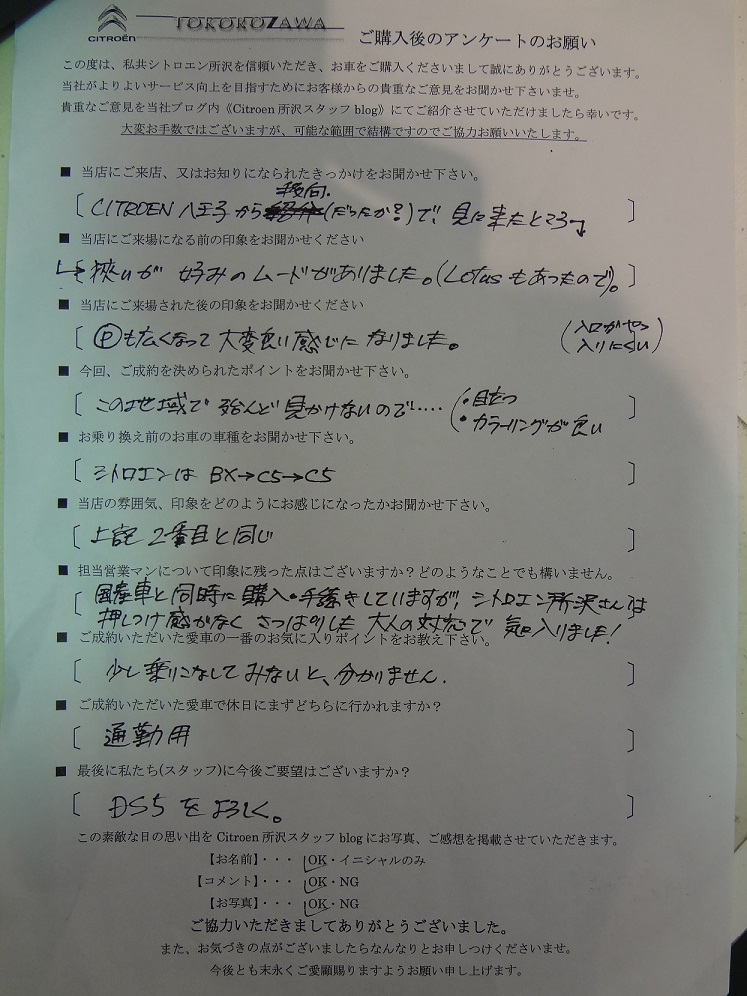 CITROËN
TOKOROZAWA
ご購入後のアンケートのお願い
この度は、私共シトロエン所沢を信頼いただき、お車をご購入くださいまして誠にありがとうございます。
当社がよりよいサービス向上を目指すためにお客様からの貴重なご意見をお聞かせ下さいませ。
貴重なご意見を当社ブログ内《Citroen 所沢スタッフ blog》にてご紹介させていただけましたら幸いです。
大変お手数ではございますが、可能な範囲で結構ですのでご協力お願いいたします。
■ 当店にご来店、又はお知りになられたきっかけをお聞かせ下さい。
[ CITROEN 八王子から (だったか?)で、見に来たところ ]
■ 当店にご来場になる前の印象をお聞かせください
狭いが 好みのムードがありました。(Lotusもあったので)。]
■ 当店にご来場された後の印象をお聞かせください
[ Ⓟも広くなって大変良い感じになりました。 (入口がやっ 入りにくい) ]
■ 今回、ご成約を決められたポイントをお聞かせ下さい。
[ この地域で殆んど見かけないので‥‥ (・目立つ ・カラーリングが良い ]
■ お乗り換え前のお車の車種をお聞かせ下さい。
[ シトロエンは BX→C5→C5 ]
■ 当店の雰囲気、印象をどのようにお感じになったかお聞かせ下さい。
[ 上記 2番目と同じ ]
■ 担当営業マンについて印象に残った点はございますか？どのようなことでも構いません。
[ 国産車と同時に購入・手続きしていますが、シトロエン所沢さんは
押しつけ感がなく さっぱりした 大人の対応で 気に入りました! ]
■ ご成約いただいた愛車の一番のお気に入りポイントをお教え下さい。
[ 少し乗りこなしてみないと、分かりません. ]
■ ご成約いただいた愛車で休日にまずどちらに行かれますか？
[ 通勤用 ]
■ 最後に私たち(スタッフ)に今後ご要望はございますか？
[ DS5をよろしく。 ]
この素敵な日の思い出を Citroen 所沢スタッフ blog にお写真、ご感想を掲載させていただきます。
【お名前】・・・ OK・イニシャルのみ
【コメント】・・・ OK・NG
【お写真】・・・ OK・NG
ご協力いただきましてありがとうございました。
また、お気づきの点がございましたらなんなりとお申しつけくださいませ。
今後とも末永くご愛顧賜りますようお願い申し上げます。